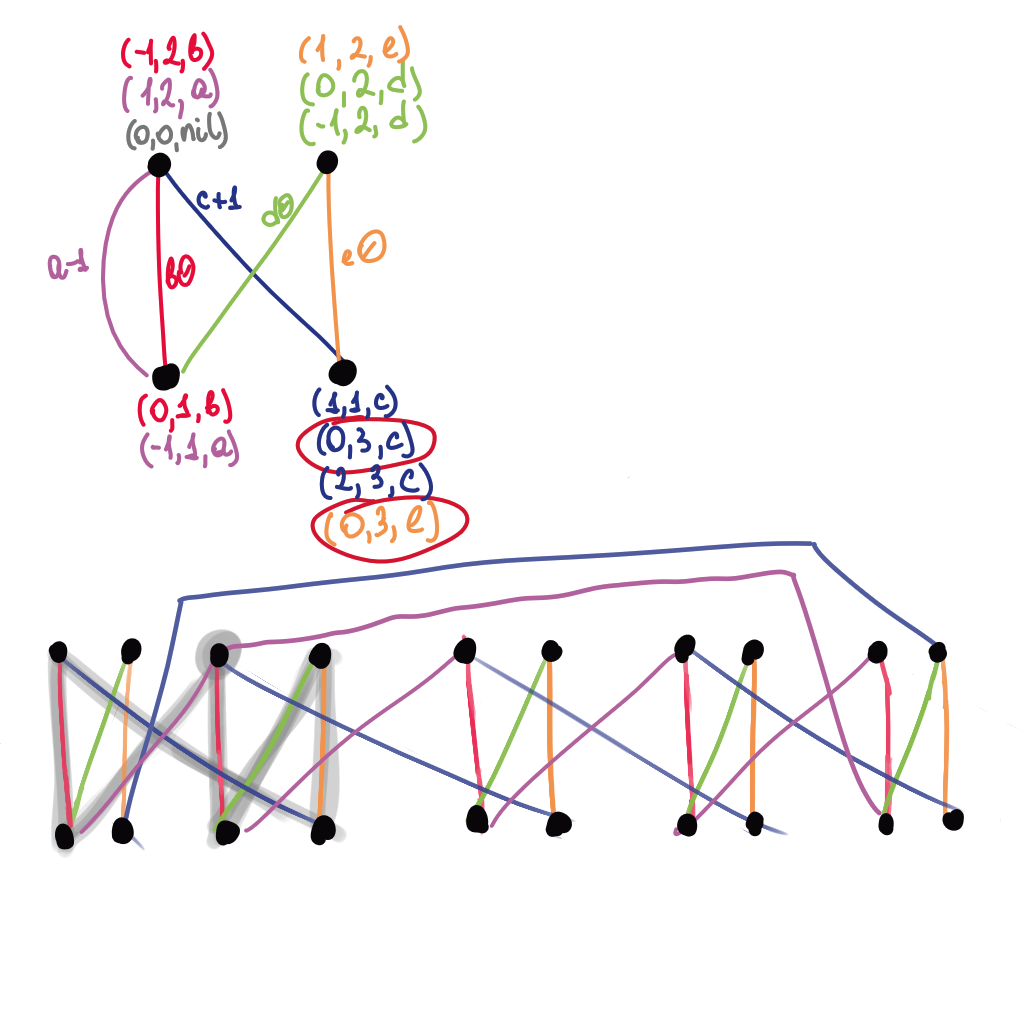 (-1,2,b)
(1,2,a)
(0,0,nil)
(1,2,e)
(0,2,d)
(-1,2,d)
c+1
d0
a-1
b0
e0
(0,1,b)
(-1,1,a)
(1,1,c)
(0,3,c)
(2,3,c)
(0,3,e)